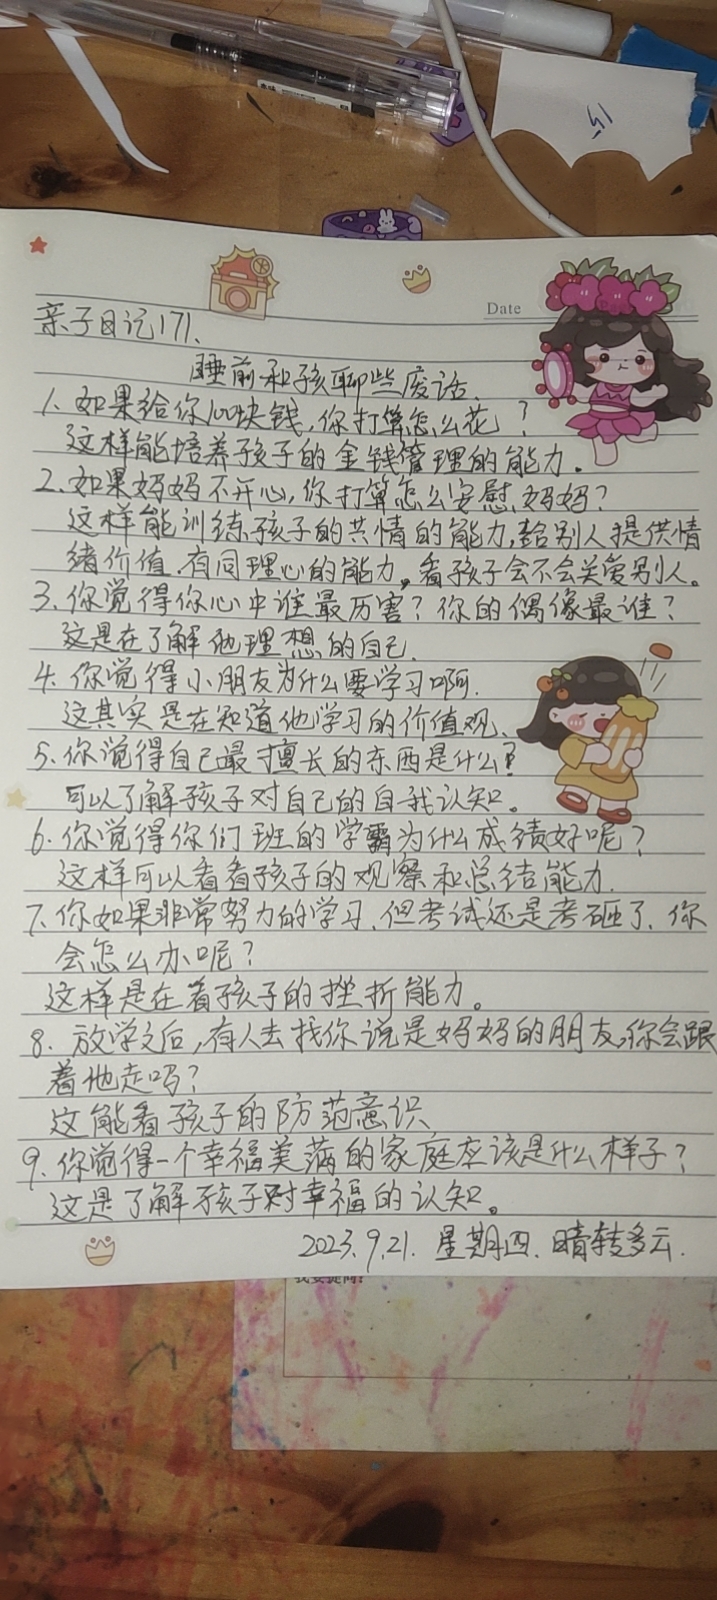 Date
亲子日记171.
睡前和孩聊些废话.
1. 如果给你100块钱,你打算怎么花?
这样能培养孩子的金钱管理的能力。
2. 如果妈妈不开心,你打算怎么安慰妈妈?
这样能训练孩子的共情的能力,给别人提供情
绪价值.有同理心的能力。看孩子会不会关爱别人。
3. 你觉得你心中谁最厉害?你的偶像最谁?
这是在了解他理想的自己.
4. 你觉得小朋友为什么要学习啊.
这其实是在知道他学习的价值观、
5. 你觉得自己最擅长的东西是什么?
可以了解孩子对自己的自我认知。
6. 你觉得你们班的学霸为什么成绩好呢?
这样可以看看孩子的观察和总结能力.
7. 你如果非常努力的学习.但考试还是考砸了.你
会怎么办呢?
这样是在看孩子的挫折能力。
8. 放学之后,有人去找你说是妈妈的朋友,你会跟
着他走吗?
这能看孩子的防范意识
9. 你觉得一个幸福美满的家庭应该是什么样子?
这是了解孩子对幸福的认知。
2023.9.21. 星期四. 晴转多云.